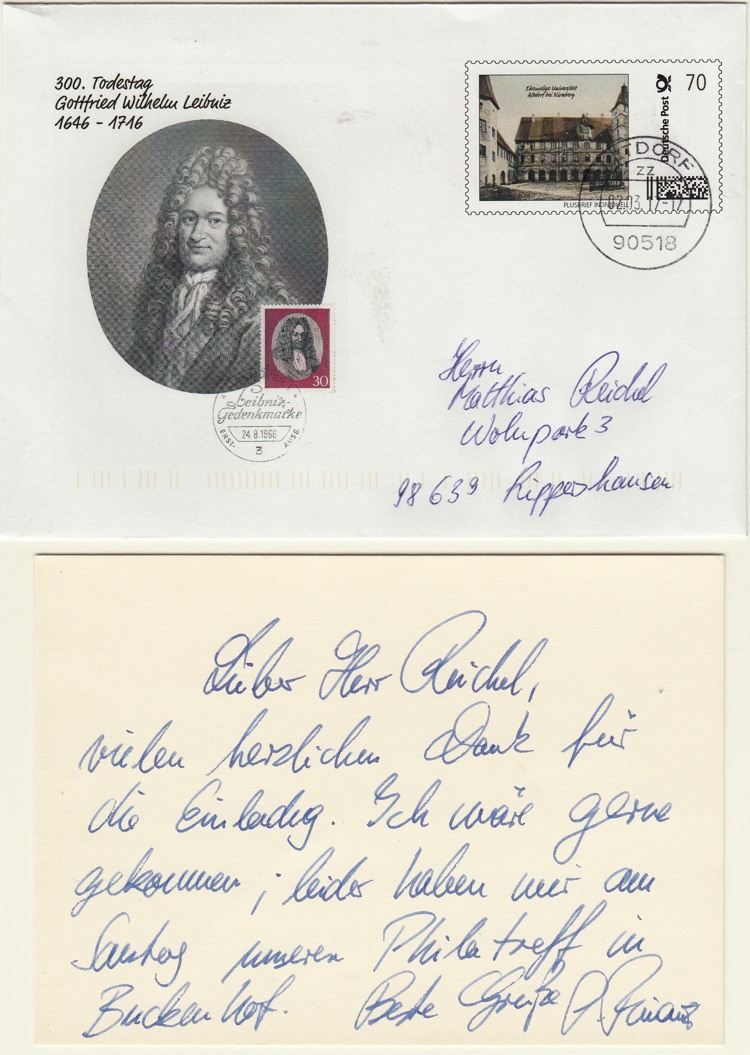 300. Todestag
Gottfried Wilhelm Leibniz
1646 - 1716
Ehemalige Universität
Altdorf bei Nürnberg
Deutsche Post
70
PLUSBRIEF INDIVIDUELL
TDORF
ZZ
02.03.17-17
90518
30
Leibniz-
Gedenkmarke
ERST-
24.8.1966
AUSG.
3
Herrn
Matthias Reichel
Wohnpark 3
98639 Rippershausen
Lieber Herr Reichel,
vielen herzlichen Dank für
die Einladg. Ich wäre gerne
gekommen; leider haben wir am
Samstag unseren Philatreff in
Buckenhof. Beste Grüße